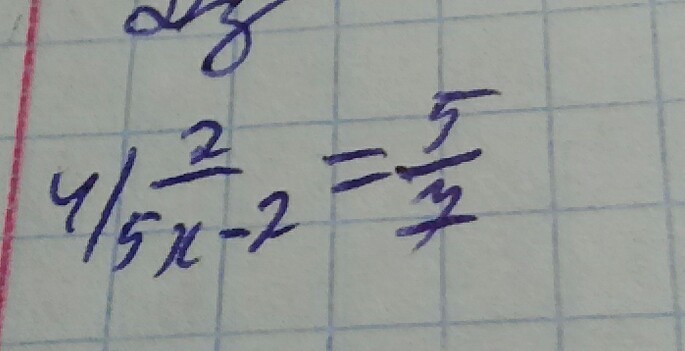 4/ 2/(5x-2) = 5/7